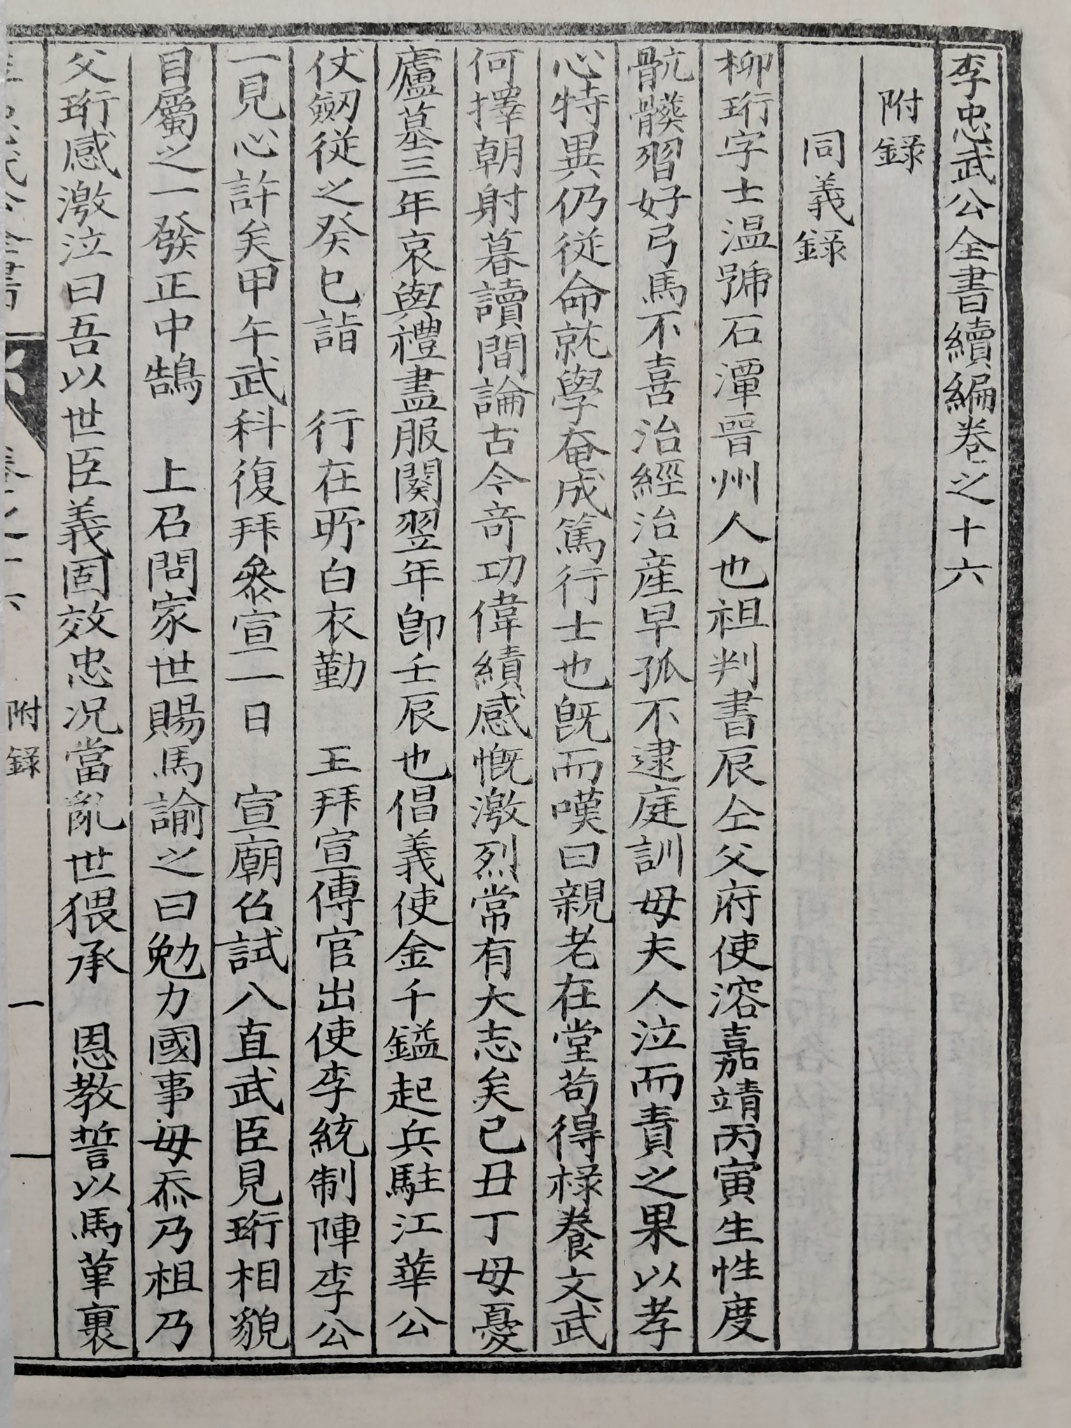 李忠武公全書續編卷之十六
附錄
同義錄
柳珩字士温號石潭晉州人也祖判書辰仝父府使溶嘉靖丙寅生性度
骯髒習好弓馬不喜治經治産早孤不逮庭訓母夫人泣而責之果以孝
心特異仍從命就學奄成篤行士也旣而嘆曰親老在堂苟得祿養文武
何擇朝射暮讀間論古今奇功偉績感慨激烈常有大志矣己丑丁母憂
廬墓三年哀與禮盡服闋翌年卽壬辰也倡義使金千鎰起兵駐江華公
仗劒從之癸巳詣 行在所白衣勤 王拜宣傳官出使李統制陣李公
一見心許矣甲午武科復拜叅宣一日 宣廟召試八直武臣見珩相貌
目屬之一發正中鵠 上召問家世賜馬諭之曰勉力國事毋忝乃祖乃
父珩感激泣曰吾以世臣義固效忠况當亂世猥承 恩教誓以馬革裹
卷之十六 附錄 一